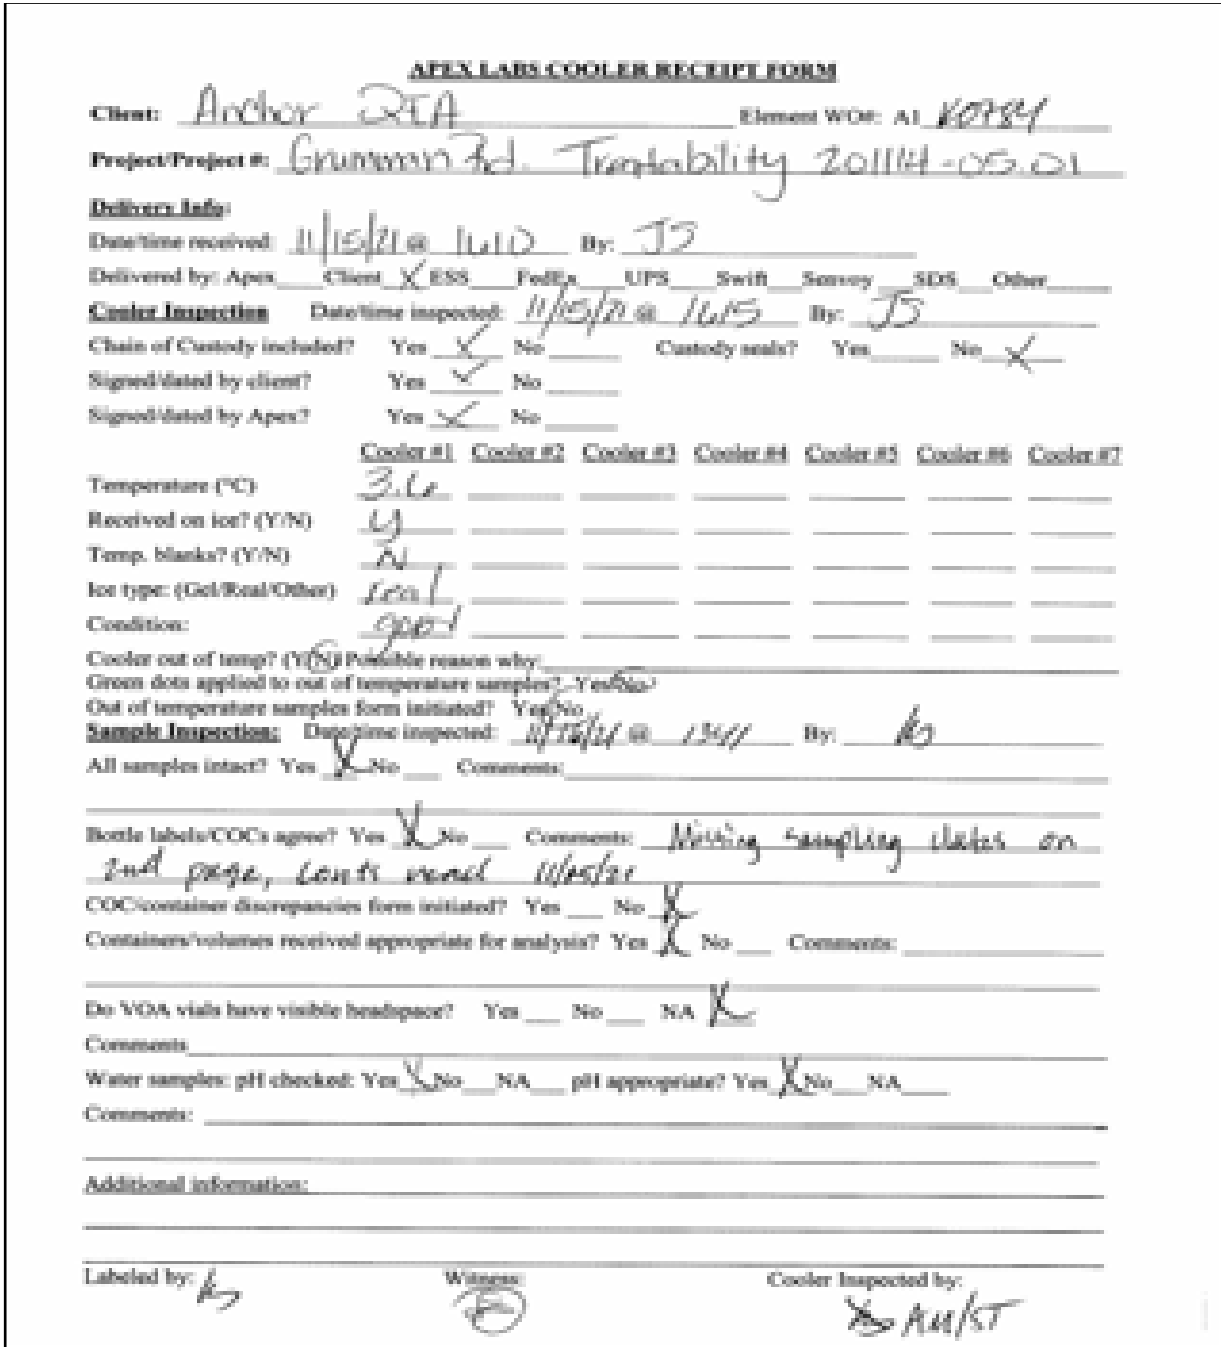 APEX LABS COOLER RECEIPT FORM
Client: Anchor QEA Element WO#: A1 K0784
Project/Project #: Grumman Rd. Treatability 201114-05.01
Delivery Info:
Date/time received: 11/15/21 @ 1610 By: JJ
Delivered by: Apex Client X ESS FedEx UPS Swift Senvoy SDS Other
Cooler Inspection Date/time inspected: 11/15/21 @ 1615 By: JJ
Chain of Custody included? Yes ✓ No Custody seals? Yes No X
Signed/dated by client? Yes ✓ No
Signed/dated by Apex? Yes ✓ No
Cooler #1 Cooler #2 Cooler #3 Cooler #4 Cooler #5 Cooler #6 Cooler #7
Temperature (°C) 3.6
Received on ice? (Y/N) Y
Temp. blanks? (Y/N) N
Ice type: (Gel/Real/Other) real
Condition: good
Cooler out of temp? (Y/N) Possible reason why:
Green dots applied to out of temperature samples? Yes/No
Out of temperature samples form initiated? Yes/No
Sample Inspection: Date/time inspected: @ By:
All samples intact? Yes X No Comments:
Bottle labels/COCs agree? Yes X No Comments: Missing sampling dates on
2nd page, conts read
COC/container discrepancies form initiated? Yes No X
Containers/volumes received appropriate for analysis? Yes X No Comments:
Do VOA vials have visible headspace? Yes No NA X
Comments
Water samples: pH checked: Yes X No NA pH appropriate? Yes X No NA
Comments:
Additional information:
Labeled by: Witness: Cooler Inspected by: